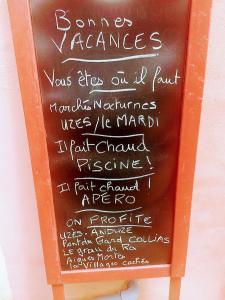 Bonnes
VACANCES
Vous êtes où il faut
Marchés Nocturnes
UZES / le MARDI
Il fait Chaud
PISCINE !
Il fait chaud !
APÉRO
ON PROFITE
UZÈS. ANDUZE
Pont du Gard COLLIAS
LE grau du Roi
Aigues Mortes
les Villages cachés